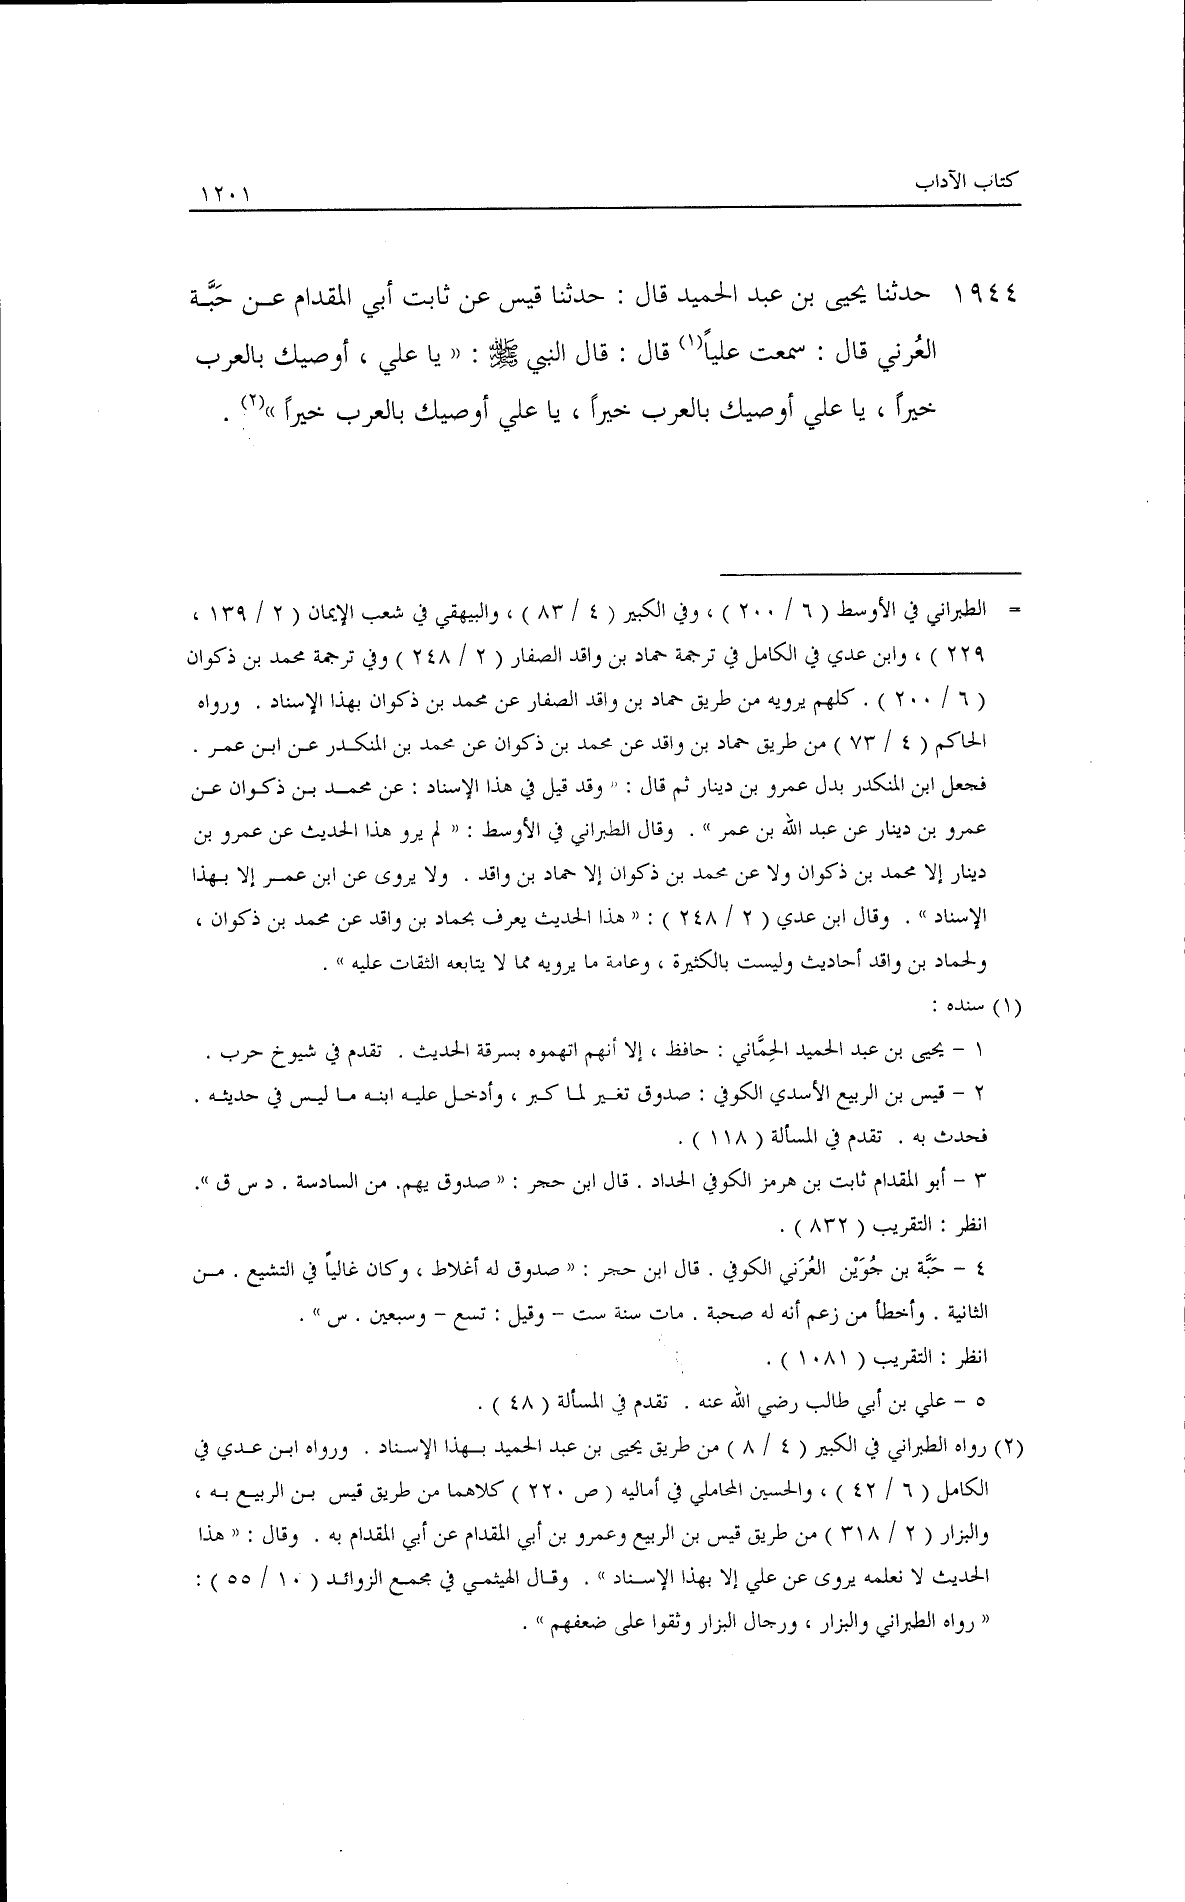 كتاب الآداب
١٢٠١
١٩٤٤ حدثنا يحيى بن عبد الحميد قال : حدثنا قيس عن ثابت أبي المقدام عـن حَبَّـة
العُرني قال : سمعت علياً(١) قال : قال النبي ﷺ : « يا علي ، أوصيك بالعرب
خيراً ، يا علي أوصيك بالعرب خيراً ، يا علي أوصيك بالعرب خيراً »(٢) .
= الطبراني في الأوسط ( ٦ / ٢٠٠ ) ، وفي الكبير ( ٤ / ٨٣ ) ، والبيهقي في شعب الإيمان ( ٢ / ١٣٩ ،
٢٢٩ ) ، وابن عدي في الكامل في ترجمة حماد بن واقد الصفار ( ٢ / ٢٤٨ ) وفي ترجمة محمد بن ذكوان
( ٦ / ٢٠٠ ) . كلهم يرويه من طريق حماد بن واقد الصفار عن محمد بن ذكوان بهذا الإسناد . ورواه
الحاكم ( ٤ / ٧٣ ) من طريق حماد بن واقد عن محمد بن ذكوان عن محمد بن المنكـدر عـن ابـن عمـر .
فجعل ابن المنكدر بدل عمرو بن دينار ثم قال : « وقد قيل في هذا الإسناد : عن محمـد بـن ذكـوان عـن
عمرو بن دينار عن عبد الله بن عمر » . وقال الطبراني في الأوسط : « لم يرو هذا الحديث عن عمرو بن
دينار إلا محمد بن ذكوان ولا عن محمد بن ذكوان إلا حماد بن واقد . ولا يروى عن ابن عمـر إلا بـهذا
الإسناد » . وقال ابن عدي ( ٢ / ٢٤٨ ) : « هذا الحديث يعرف بحماد بن واقد عن محمد بن ذكوان ،
ولحماد بن واقد أحاديث وليست بالكثيرة ، وعامة ما يرويه مما لا يتابعه الثقات عليه » .
(١) سنده :
١ – يحيى بن عبد الحميد الحِمَّاني : حافظ ، إلا أنهم اتهموه بسرقة الحديث . تقدم في شيوخ حرب .
٢ – قيس بن الربيع الأسدي الكوفي : صدوق تغـير لمـا كـبر ، وأدخـل عليـه ابنـه مـا ليـس في حديثـه .
فحدث به . تقدم في المسألة ( ١١٨ ) .
٣ – أبو المقدام ثابت بن هرمز الكوفي الحداد . قال ابن حجر : « صدوق يهم. من السادسة . د س ق ».
انظر : التقريب ( ٨٣٢ ) .
٤ – حَبَّة بن جُوَيْن العُرَني الكوفي . قال ابن حجر : « صدوق له أغلاط ، وكان غالياً في التشيع . مـن
الثانية . وأخطأ من زعم أنه له صحبة . مات سنة ست – وقيل : تسع – وسبعين . س » .
انظر : التقريب ( ١٠٨١ ) .
٥ – علي بن أبي طالب رضي الله عنه . تقدم في المسألة ( ٤٨ ) .
(٢) رواه الطبراني في الكبير ( ٤ / ٨ ) من طريق يحيى بن عبد الحميد بـهذا الإسـناد . ورواه ابـن عـدي في
الكامل ( ٦ / ٤٢ ) ، والحسين المحاملي في أماليه ( ص ٢٢٠ ) كلاهما من طريق قيس بـن الربيـع بـه ،
والبزار ( ٢ / ٣١٨ ) من طريق قيس بن الربيع وعمرو بن أبي المقدام عن أبي المقدام به . وقال : « هذا
الحديث لا نعلمه يروى عن علي إلا بهذا الإسـناد » . وقـال الهيثمـي في مجمـع الزوائـد ( ١٠ / ٥٥ ) :
« رواه الطبراني والبزار ، ورجال البزار وثقوا على ضعفهم » .